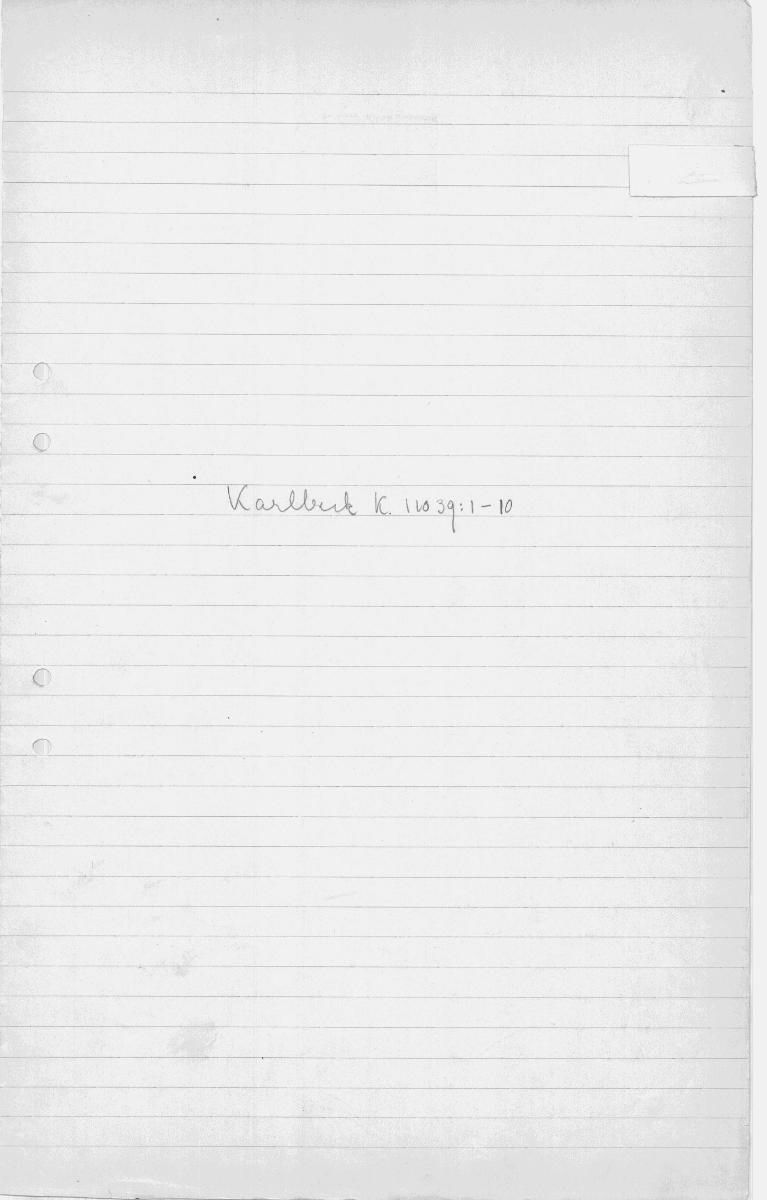 Karlbeck K. 11039:1-10